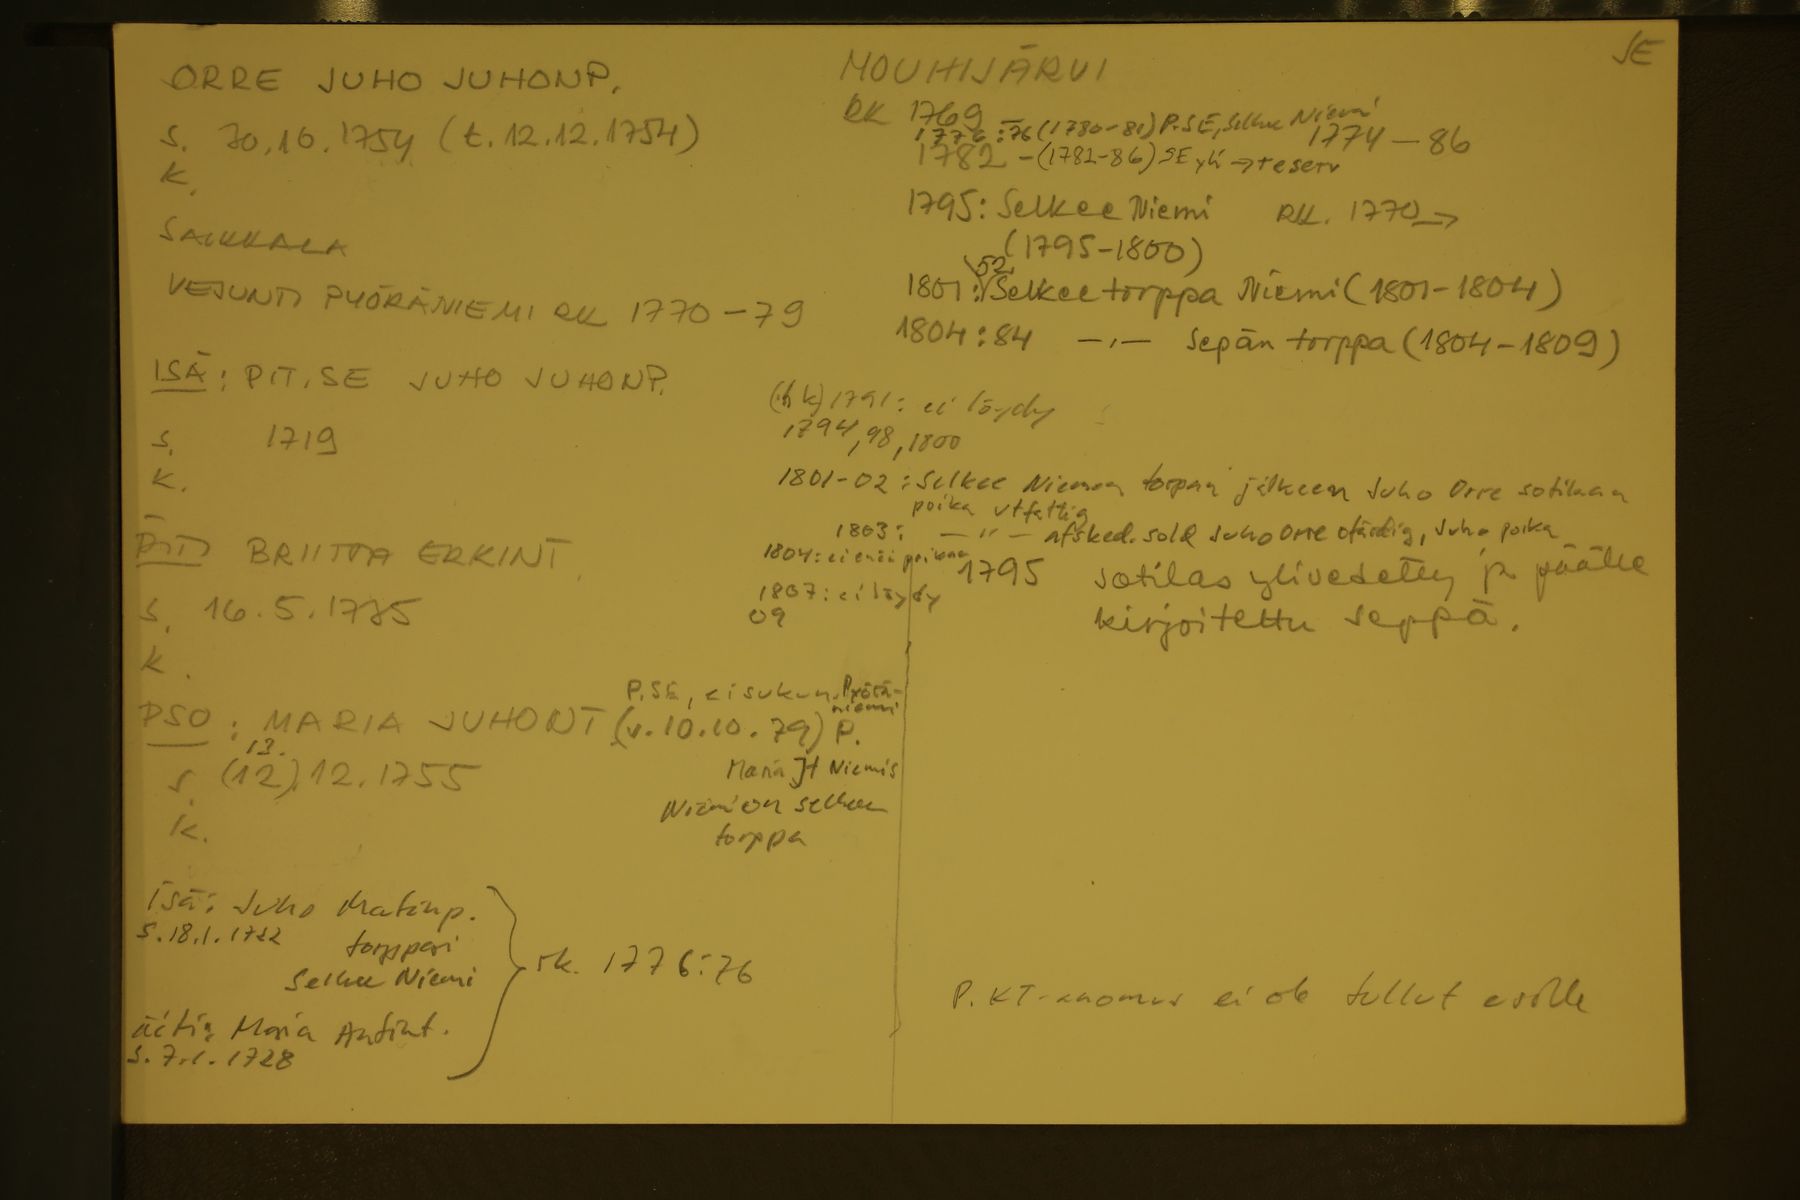 SE
ORRE JUHO JUHONP.
s. 30.10.1754 (t. 12.12.1754)
K.
SAUKKALA
VESUNTI PYÖRÄNIEMI RK 1770-79
ISÄ: PIT.SE JUHO JUHONP.
s. 1719
K.
ÄITI BRIITTA ERKINT.
s. 16.5.1735
K.
P.SE, ei sukun. Pyörä-
niemi
PSO: MARIA JUHONT (v. 10.10.79) P.
13.
s. (12).12.1755
K.
Maria Jt Niemis
Niemi on Selkeen
torppa
Isä: Juho Matinp.
s. 18.1.1722
torppari
Selkee Niemi
äiti: Maria Antint.
s. 7.1.1728
rk. 1776:76
MOUHIJÄRVI
RK 1769
1776:76 (1780-81) P.SE, Selkee Niemi
1774-86
1782 -(1782-86) SE yli → reserv
1795: Selkee Niemi RK. 1770→
(1795-1800)
52
1801: Selkee torppa Niemi (1801-1804)
1804:84 -"- Sepän torppa (1804-1809)
(hk) 1791: ei löydy
1794, 98, 1800
1801-02: Selkee Niemen torpan jälkeen Juho Orre sotilaan
poika utfattig
1803: -"- afsked. sold Juho Orre ofärdig, Juho poika
1804: ei enää poikaa
1807: ei löydy
09
1795 sotilas ylivedetty ja päälle
kirjoitettu seppä.
P. KT-anomus ei ole tullut esille